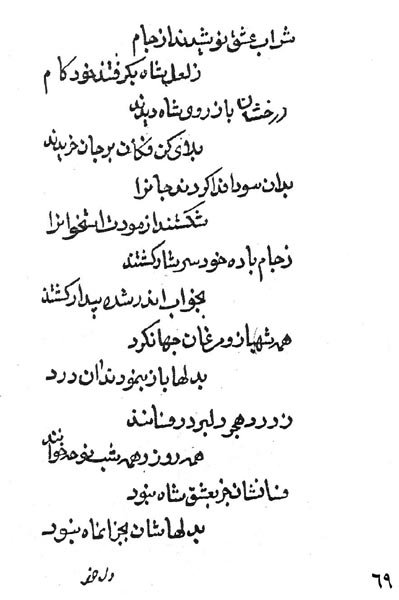 شراب عشق نوشیدند از جام
ز لعل شاه بگرفتند خود کام
درخشان باز روی شاه دیدند
بلای کن فکان بر جان خریدند
بدان سودا فدا کردند جانرا
شکستند از مودت استخوانرا
ز جام باده خود سرشار گشتند
بخواب اندر شده بیدار گشتند
همه شهباز و مرغان جهانگرد
بدلها باز بنمودند آن درد
ز درد هجر دلبر در فنانند
همه روز و همه شب نوحه خوانند
فنانشان جز بعشق شاه نبود
بدلهاشان بجز آنماه نبود
۶۹